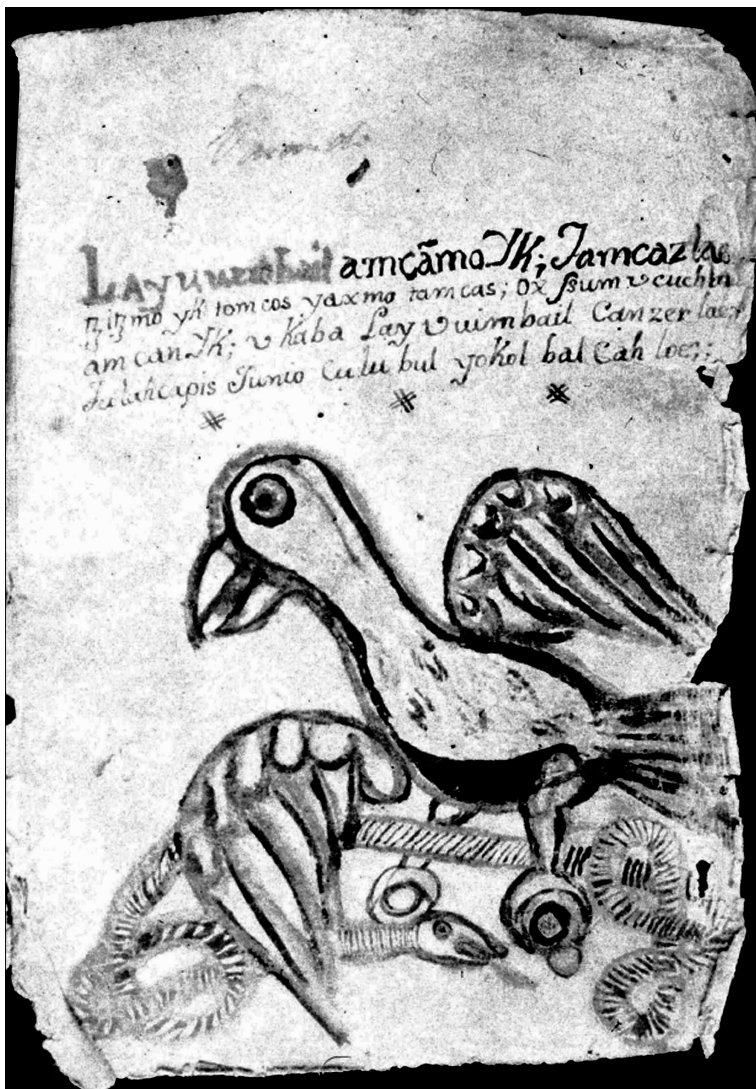 Lay u uimbail amcãmo Yk; Jamcaz lae
yk tamcas yaxmo tamcas; ox ꞵum u cuchin
am can Yk; u Kaba Lay u uimbail Canzer lae;
Junio Culu bul yokol bal Cah loe;;